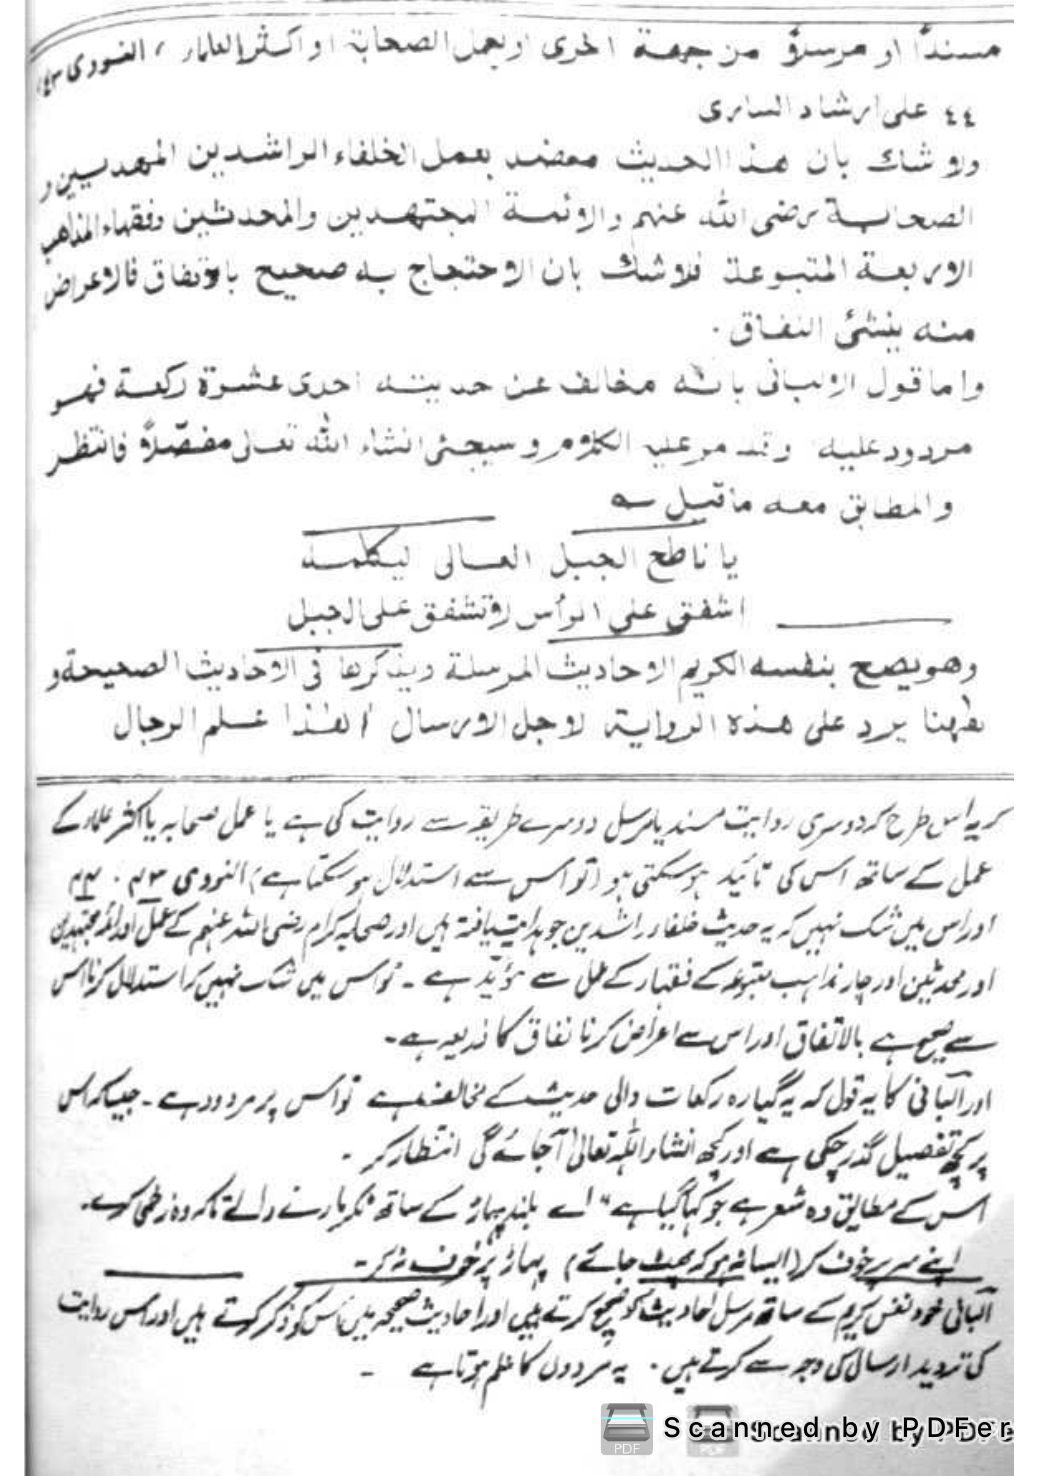 مسنداً او مرسلاً من جهة اخرى او بعمل الصحابة او اكثر العلماء ، النووي ٤٣،
٤٤ على ارشاد الساری
ولا شك بان هذا الحديث معضد بعمل الخلفاء الراشدين المهديين و
الصحابة رضى الله عنهم والائمة المجتهدين والمحدثين وفقهاء المذاهب
الاربعة المتبوعة فلا شك بان الاحتجاج به صحيح بالاتفاق فالاعراض
منه ينشئ النفاق .
واما قول الالبانى بانه مخالف عن حديث احدى عشرة ركعة فهو
مردود عليه وقد مر عليه الكلام و سيجئ انشاء الله تعالى مفصلاً فانتظر
والمطابق معه ما قيل ؎
يا ناطح الجبل العالى ليكلمه
اشفق على الرأس لا تشفق على الجبل
وهو يصح بنفسه الكريم الاحاديث المرسلة ويذكرها فى الاحاديث الصحيحة و
ههنا يرد على هذه الرواية لاجل الارسال أهذا علم الرجال
کر یہ اس طرح کر دوسری روایت مسند یا مرسل دوسرے طریقہ سے روایت کی ہے یا عمل صحابہ یا اکثر علماء کے
عمل کے ساتھ اس کی تائید ہو سکتی ہو (تو اس سے استدلال ہو سکتا ہے) النووی ۴۳ ، ۴۴
اور اس میں شک نہیں کہ یہ حدیث خلفاء راشدین جو ہدایت یافتہ ہیں اور صحابہ کرام رضی اللہ عنہم کے عمل اور ائمہ مجتہدین
اور محدثین اور چار مذاہب متبوعہ کے فقہاء کے عمل سے مؤید ہے ۔ تو اس میں شک نہیں کہ استدلال کرنا اس
سے صحیح ہے بالاتفاق اور اس سے اعراض کرنا نفاق کا ذریعہ ہے۔
اور البانی کا یہ قول کہ یہ گیارہ رکعات والی حدیث کے مخالف ہے تو اس پر مردود ہے ۔ جیسا کہ اس
پر کچھ تفصیل گذر چکی ہے اور کچھ انشاء اللہ تعالیٰ آجائے گی انتظار کر ۔
اس کے مطابق وہ شعر ہے جو کہا گیا ہے " اے بلند پہاڑ کے ساتھ ٹکر مارنے والے تاکہ وہ زخمی کرے۔
اپنے سر پر خوف کر (ایسا نہ ہو کہ پھٹ جائے) پہاڑ پر خوف نہ کر ۔
البانی خود نفس کریم کے ساتھ مرسل احادیث کو صحیح کرتے ہیں اور احادیث صحیحہ میں اس کو ذکر کرتے ہیں اور اس روایت
کی تردید ارسال کی وجہ سے کرتے ہیں . یہ مردوں کا علم ہوتا ہے ۔
Scanned by PDFer